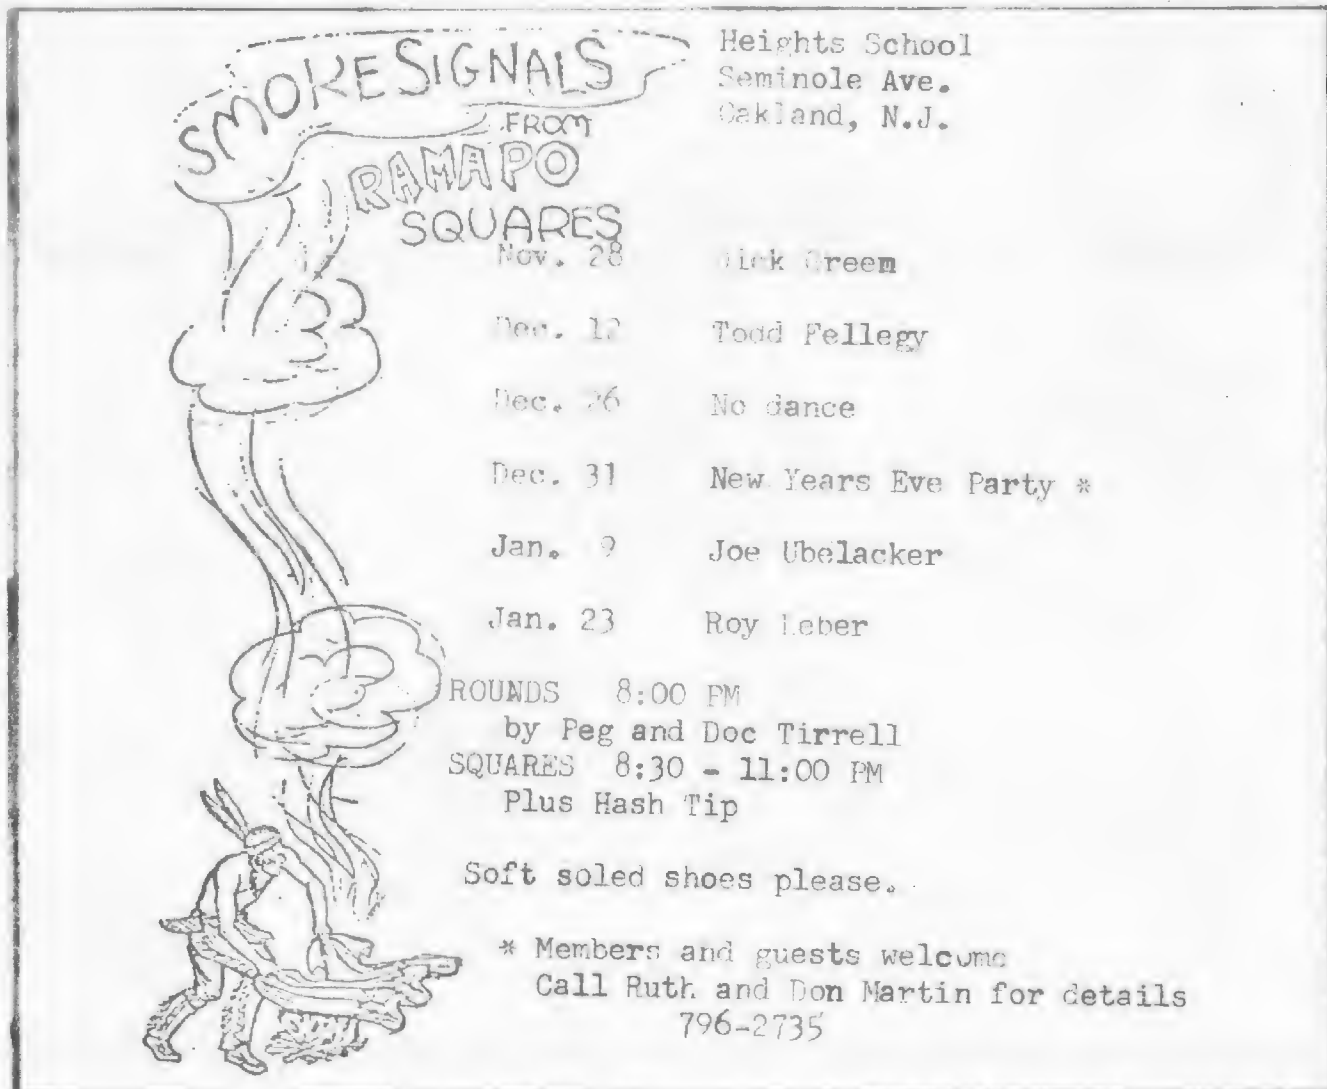 SMOKE SIGNALS
FROM
RAMAPO
SQUARES
Heights School
Seminole Ave.
Oakland, N.J.
Nov. 28 Creem
Dec. 12 Todd Fellegy
Dec. 26 No dance
Dec. 31 New Years Eve Party *
Jan. 9 Joe Ubelacker
Jan. 23 Roy Leber
ROUNDS 8:00 PM
by Peg and Doc Tirrell
SQUARES 8:30 - 11:00 PM
Plus Hash Tip
Soft soled shoes please.
* Members and guests welcome
Call Ruth and Don Martin for details
796-2735